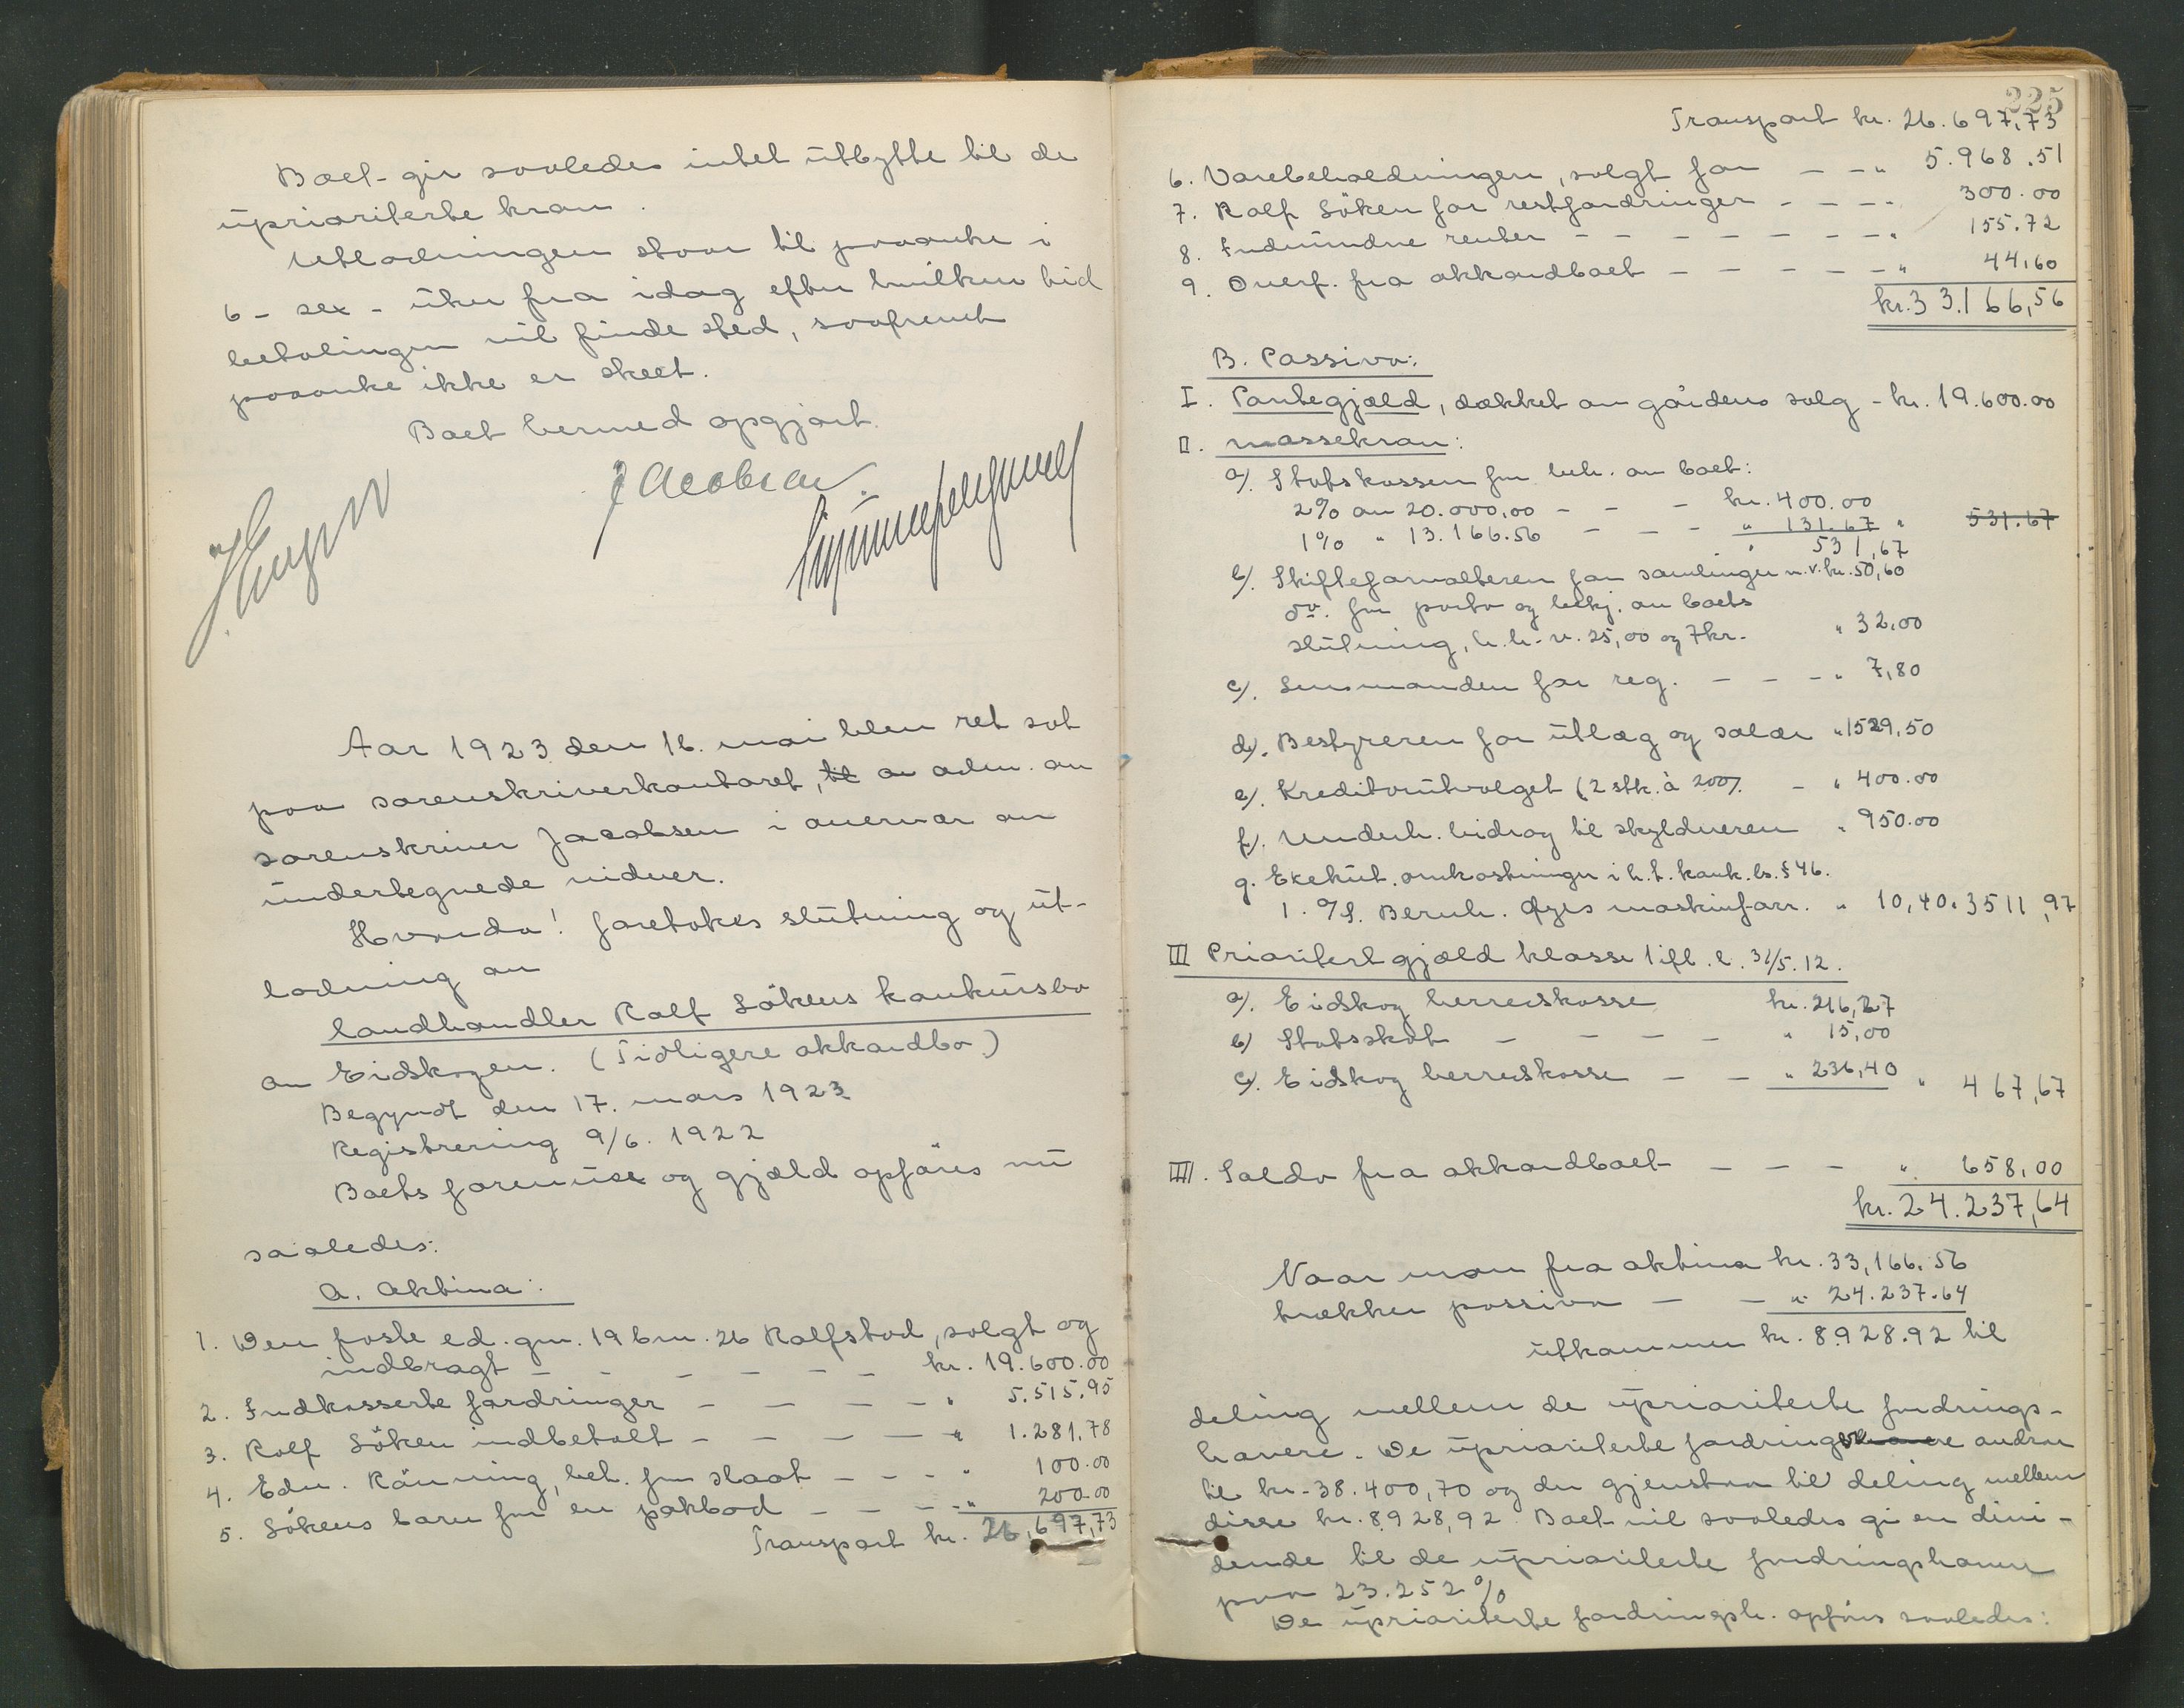 Boet gir saaledes intet utbytte til de
uprioriterte krav.
Utlodningen staar til paaanke i
6 - sex - uker fra idag efter hvilken tid
betalingen vil finde sted, saafremt
paaanke ikke er skeet.
Boet hermed opgjort.
Jacobsen
Aar 1923 den 16. mai blev ret sat
paa sorenskriverkontoret, til av adm. av
sorenskriver Jacobsen i overvær av
undertegnede vidner.
Hvorda! foretokes slutning og ut-
lodning av
landhandler Rolf Sökens konkursbo
av Eidskogen. (Tidligere akkordbo)
Begyndt den 17. mars 1923
Registrering 9/6. 1922
Boets formue og gjæld opföres nu
saaledes:
A. Aktiva:
1. Den faste ed. gnr. 19 bnr. 26 Rolfstad, solgt og
indbragt - - - - - - kr. 19.600.00
2. Indkasserte fordringer - - - - " 5.515.95
3. Rolf Söken indbetalt - - - - " 1.281,78
4. Edv. Rönning, bet. for slaat - - - " 100.00
5. Sökens barn for en pakbod - - - " 200.00
Transport kr. 26,697,73
225
Transport kr. 26.697,73
6. Varebeholdningen, solgt for - - " 5.968.51
7. Rolf Söken for restfordringer - - - " 300.00
8. Indvundne renter - - - - - - - " 155.72
9. Overf. fra akkordboet - - - - - " 44,60
kr. 33.166,56
B. Passiva:
I. Pantegjæld, dækket av gårdens salg - kr. 19.600.00
II. Massekrav:
a). Statskassen for beh. av boet:
2% av 20.000,00 - - - kr. 400.00
1% " 13.166.56 - - - " 131.67 " 531.67
" 531,67
b). Skifteforvalteren for samlinger m.v. kr. 50,60
do. for porto og bekj. av boets
slutning, h.h.v. 25,00 og 7 kr. " 32,00
c). Lensmanden for reg. - - - " 7,80
d). Bestyreren for utlæg og salær " 1529,50
e). Kreditorutvalget (2 stk. à 200). - " 400.00
f). Underh. bidrag til skyldneren " 950.00
g. Exekut. omkostninger i h.t. konk. ls. § 46.
1. A/S. Bernh. Øyes maskinforr. " 10,40. 3511,97
III Prioritert gjæld klasse 1 ifl. l. 31/5. 12.
a). Eidskog herredskasse kr. 216,27
b) Statsskat - - - - " 15,00
c). Eidskog herredskasse - - " 236,40 " 467,67
IIII. Saldo fra akkordboet - - - " 658,00
kr. 24.237,64
Naar man fra aktiva kr. 33,166.56
trækker passiva - - " 24.237.64
utkommer kr. 8.928.92 til
deling mellem de uprioriterte fordrings-
havere. De uprioriterte fordringshavere andrar
til kr. 38.400,70 og der gjenstaar til deling mellem
disse kr. 8928,92. Boet vil saaledes gi en divi-
dende til de uprioriterte fordringshavere
paa 23.252 %
De uprioriterte fordringsh. opföres saaledes: